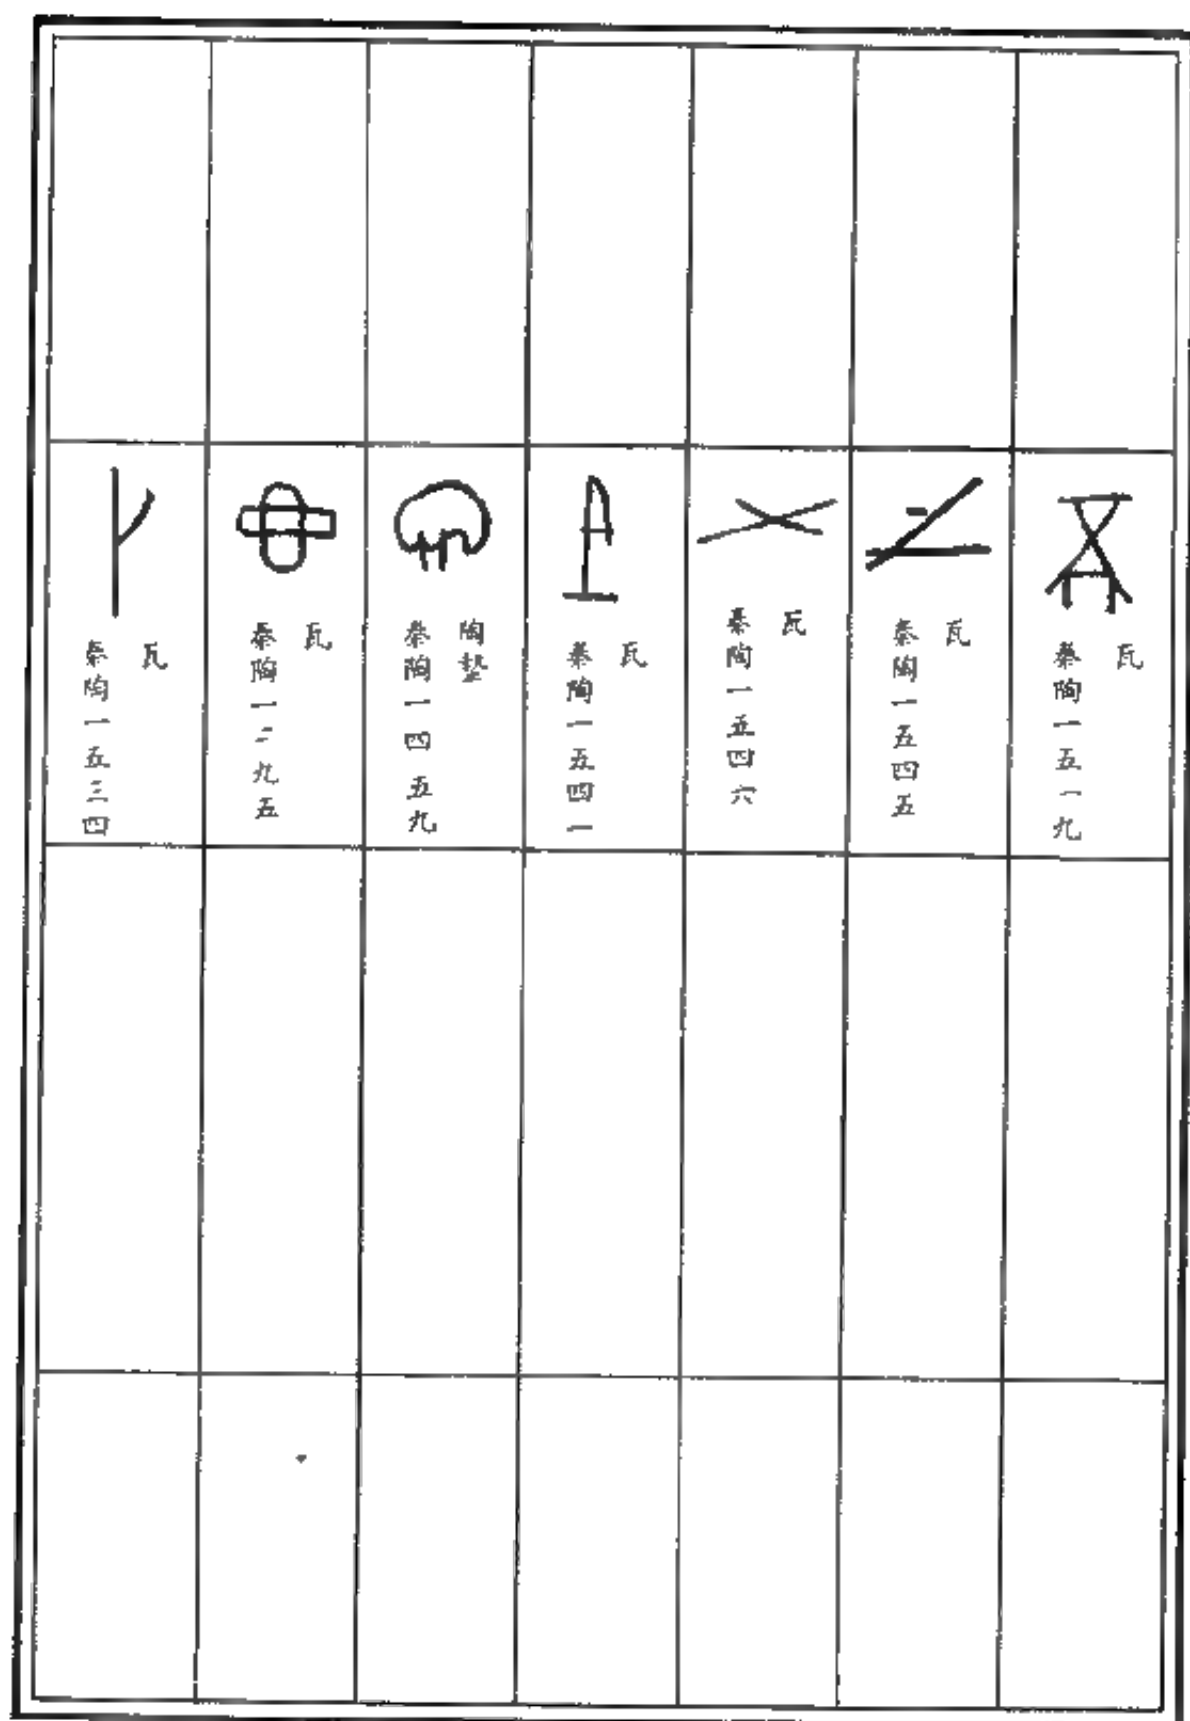 瓦
秦陶一五一九
瓦
秦陶一五四五
瓦
秦陶一五四六
瓦
秦陶一五四一
陶墊
秦陶一四五九
瓦
秦陶一二九五
瓦
秦陶一五三四